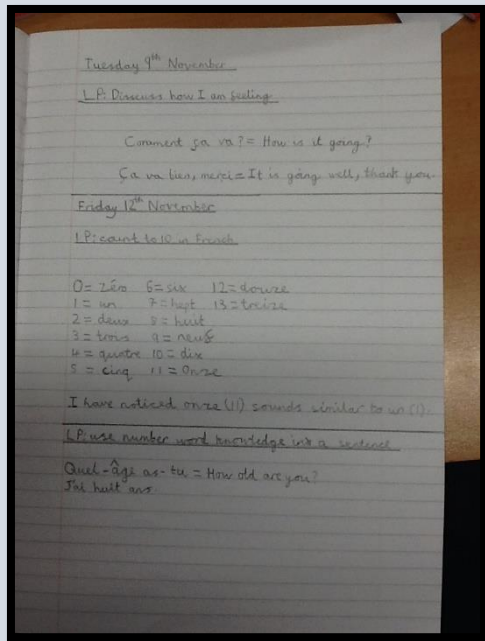 Tuesday 9th November
LP: Disscuss how I am feeling
Comment ça va? = How is it going?
Ça va bien, merci = It is going well, thank you.
Friday 12th November
LP: count to 10 in French
0 = zéro 6 = six 12 = douze
1 = un 7 = hept 13 = treize
2 = deux 8 = huit
3 = trois 9 = neuf
4 = quatre 10 = dix
5 = cinq 11 = Onze
I have noticed onze (11) sounds similar to un (1).
LP: use number word knowledge in a sentence
Quel-âge as-tu = How old are you?
J'ai huit ans.